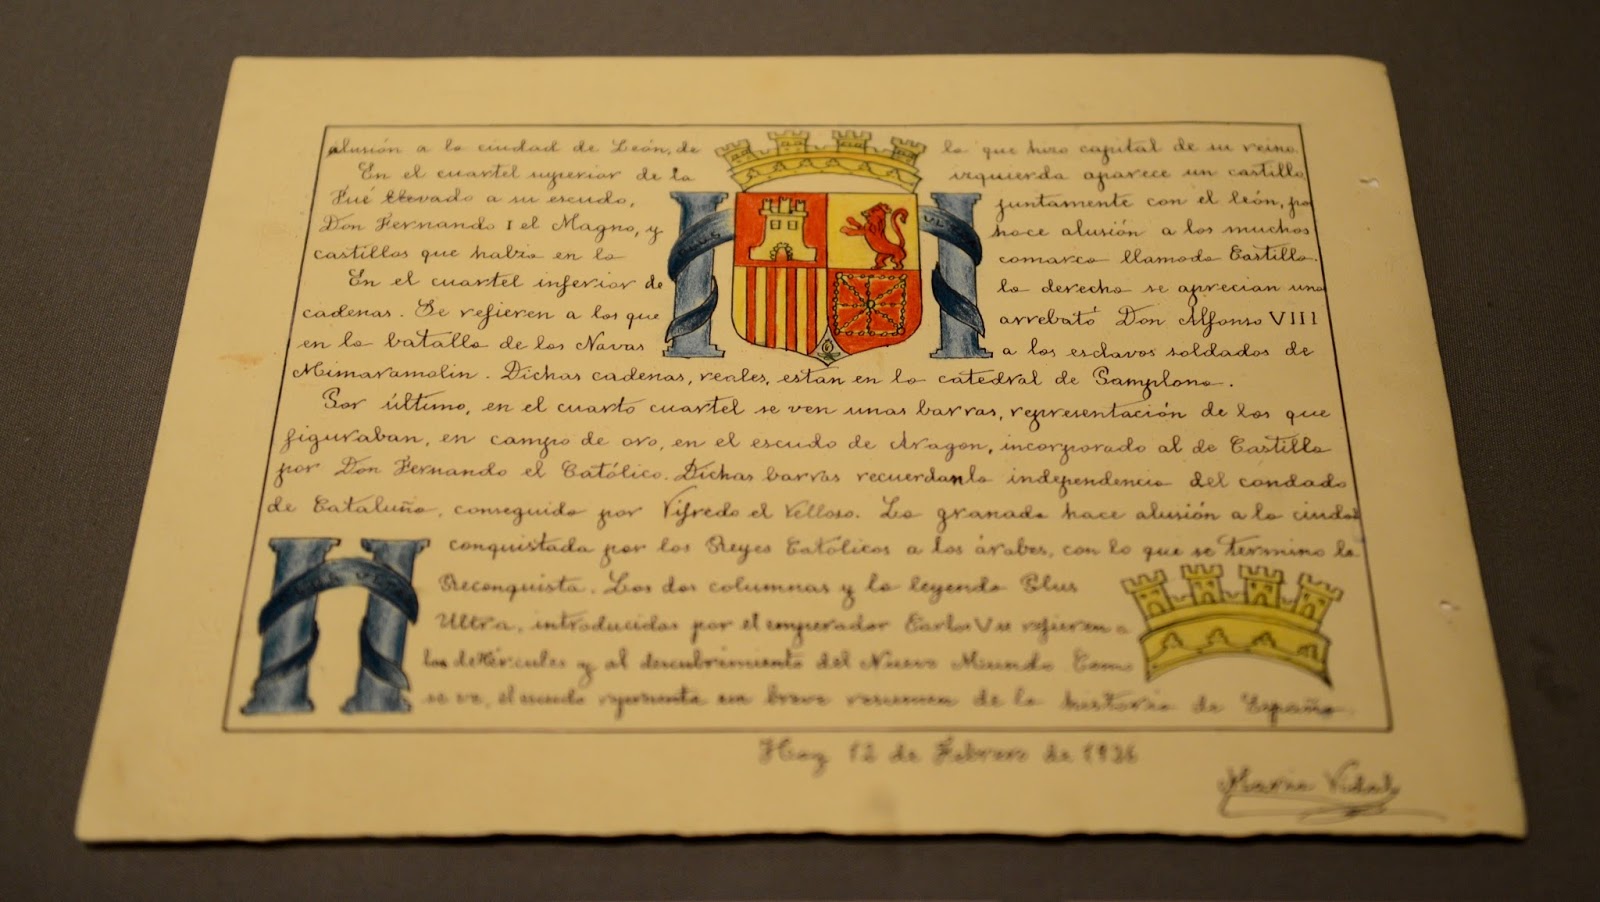 alusión a la ciudad de León, de la que hizo capital de su reino.
En el cuartel superior de la izquierda aparece un castillo
Fué llevado a su escudo, juntamente con el león, por
Don Fernando I el Magno, y hace alusión a los muchos
castillos que había en la comarca llamada Castilla.
En el cuartel inferior de la derecha se aprecian una
cadenas. Se refieren a las que arrebató Don Alfonso VIII
en la batalla de las Navas a los esclavos soldados de
Mimaramolin. Dichas cadenas, reales, estan en la catedral de Pamplona.
Por último, en el cuarto cuartel se ven unas barras, representación de las que
figuraban, en campo de oro, en el escudo de Aragon, incorporado al de Castilla
por Don Fernando el Católico. Dichas barras recuerdan la independencia del condado
de Cataluña, conseguida por Vifredo el Velloso. La granada hace alusión a la ciudad
conquistada por los Reyes Católicos a los árabes, con lo que se termino la
Reconquista. Las dos columnas y la leyenda Plus
Ultra, introducidas por el emperador Carlos V se refieren a
las de Hércules y al descubrimiento del Nuevo Mundo Como
se ve, el escudo representa un breve resumen de la historia de España
Hoy 12 de Febrero de 1936
Maria Vidal